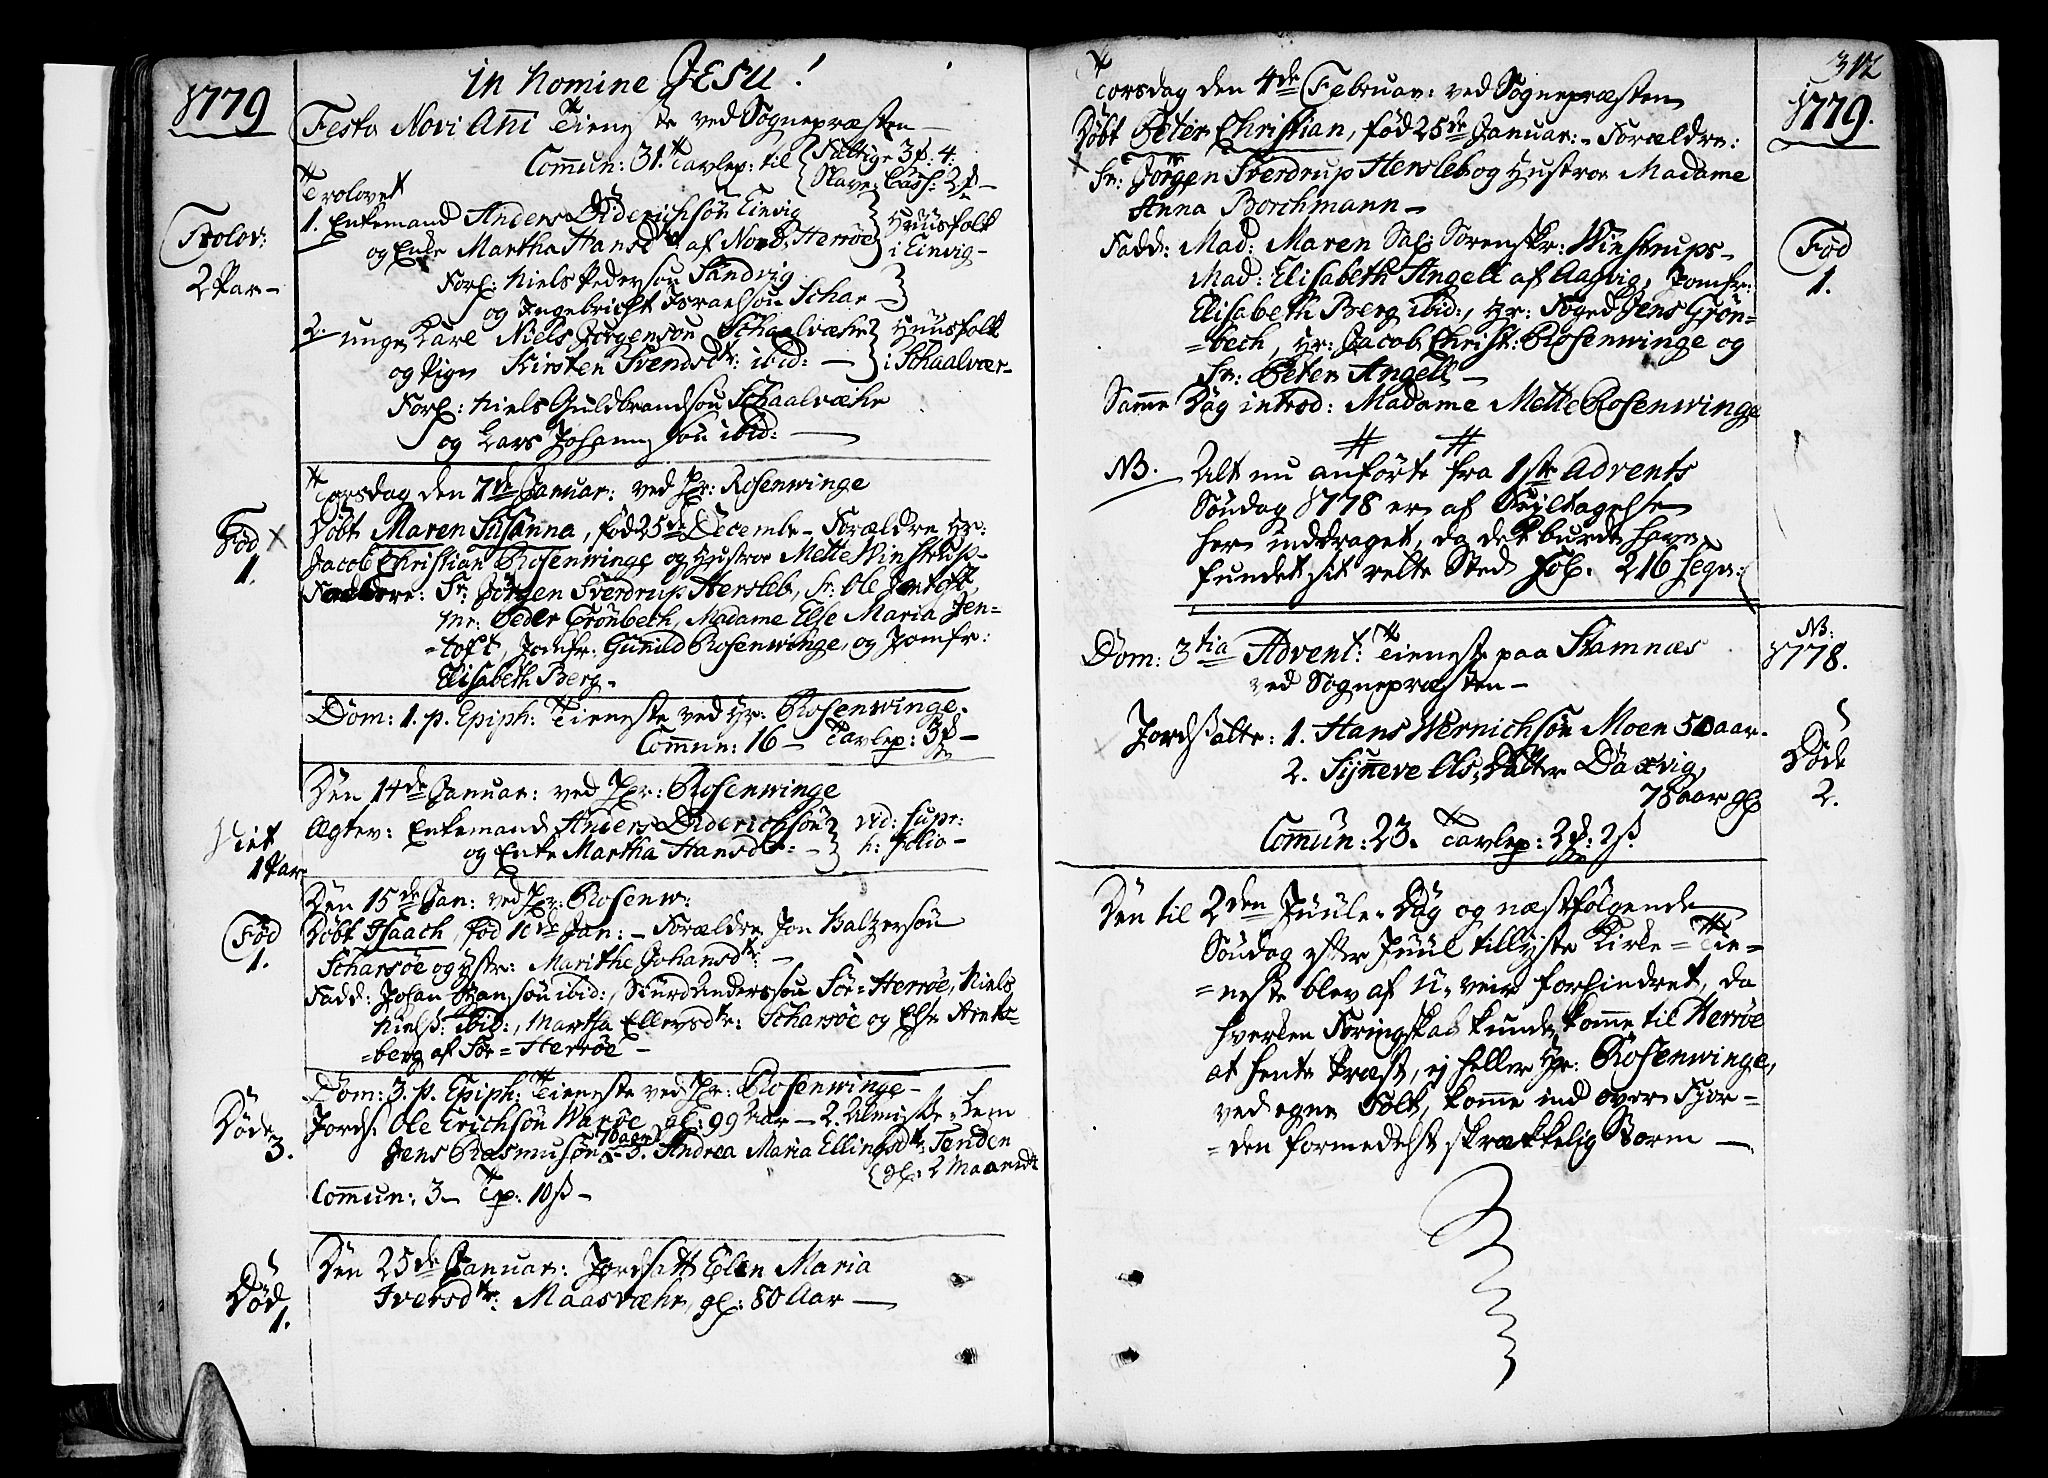 1779
in Nomine JESU!
Festo Novi Ani Tieneste ved Sognepræsten
Commun: 31. Tavlep: til {Fattige 3 : 4.
{Slave: Cass: 2
Trolov:
2 Par
Trolovet
1. Enkemand Anders Diderichsøn Einvig } Huusfolk
og Enke Martha Hansdtr af Nord: Herrøe } i Einvig
Forl: Niels Pedersøn Sandvig
og Ingebricht Israelsøn Schar
2. unge Karl Niels Jørgensøn Schaalvæhr } Huusfolk
og Pige Kirsten Svendsdtr: ibid: } i Schaalvær
Forl: Niels Guldbrandsøn Schaalvæhr
og Lars Johannssøn ibid:
Fød X
1.
Torsdag den 7de Januar: ved Hr: Rosenwinge
Døbt Maren Susanna, fød 25de Decembr Forældre Hr:
Jacob Christian Rosenwinge og Hustroe Mette Winstrup
Faddere: Sr: Jörgen Sverdrup Hersleb, Sr: Ole Jentoft,
mr: Peder Grönbech, Madame Else Maria Jen=
=toft, Jomfr: Gunild Rosenwinge, og Jomfr:
Elisabeth Berg.
Dom: 1. p. Epiph: Tieneste ved Hr: Rosenwinge.
Commun: 16 Tavlep: 3
Viet
1 Par
Den 14de Januar: ved Hr: Rosenwinge
Ægtev: Enkemand Anders Diderichsøn } vid: supr:
og Enke Martha Hansdtr: } h: folio
Fød
1.
Den 15de Jan: ved Hr: Rosenw:
Døbt Isaach, fød 10de Jan: Forældre Jon Baltzersøn
Scharsøe og Hstr: Marithe Johansdtr:
Fadd: Johan Hansøn ibid:, Siurd Anderssøn Sör=Herröe, Niels
Nielss: ibid:, Martha Ellevsdtr: Scharsøe og Else Arents=
=berg af Sör=Herröe
Døde
3.
Dom: 3. p. Epiph: Tieneste ved Hr: Rosenwinge
Jords: Ole Erichsön Waröe gl: 99 Aar 2. Almisse=Lem
Jens Rasmusön 70 aar 3. Andrea Maria Ellingsdtr: Tenden
{gl: 2 Maaneder
Commun: 3 Tp: 10 ß
Død
1.
Den 25de Januar: Jordsatt Elen Maria
Iversdtr: Maasvæhr, gl: 80 Aar
312
1779.
Torsdag den 4de Februar: ved Sognepræsten
Døbt Peter Christian, fød 25de Januar: Forældre:
Sr: Jörgen Sverdrup Hersleb og Hustroe Madame
Anna Borchmann
Fød
1.
Fadd: Mad: Maren Sal: Sorenskr: Winstrups
Mad: Elisabeth Angell af Aagvig, Jomfr:
Elisabeth Berg ibid:, Hr: Foged Jens Grön=
=bech, Hr: Jacob Christ: Rosenwinge og
Sr: Peter Angell
Samme Dag introd: Madame Mette Rosenwinge
NB. Alt nu anförte fra 1ste Advents
Söndag 1778 er af Feyltagelse
her inddraget, da det burde have
fundet sit rette Sted Fol. 216 seqv:
NB:
1778.
Dom: 3tia Advent: Tieneste paa Stamnæs
ved Sognepræsten
Døde
2.
Jordsatte: 1. Hans Wernichsön Moen 50 aar.
2. Synneve Ols Datter Daxvig,
75 aar gl
Commun: 23. Tavlep: 2 : 2 ß
Den til 2den Juule=Dag og næstfølgende
Søndag efter Juul tillyste Kirke=Tie=
=neste blev af U-veir forhindret, da
hverken Føringskab kunde komme til Herröe
at hente Præst, ej heller Hr: Rosenwinge,
ved egne Folk, komme ind over Fjor=
=den formedelst skrækkelig Storm